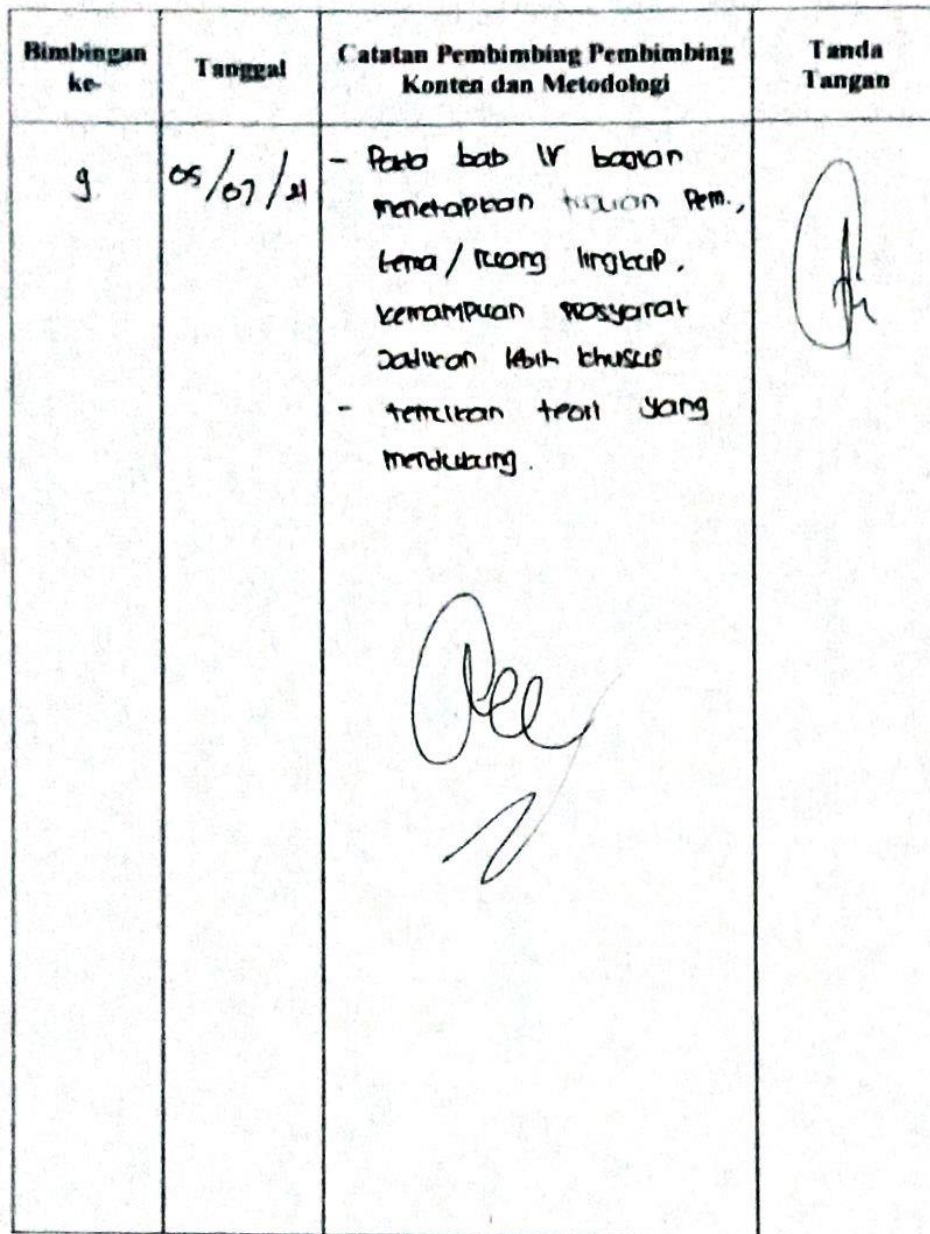 Bimbingan ke-
Tanggal
Catatan Pembimbing Pembimbing
Konten dan Metodologi
Tanda
Tangan
9.
05/07/21
- Pada bab IV bagian
menetapkan tujuan Pem.,
tema / ruang lingkup,
kemampuan prasyarat
Jadikan lebih khusus
- temukan teori yang
mendukung.